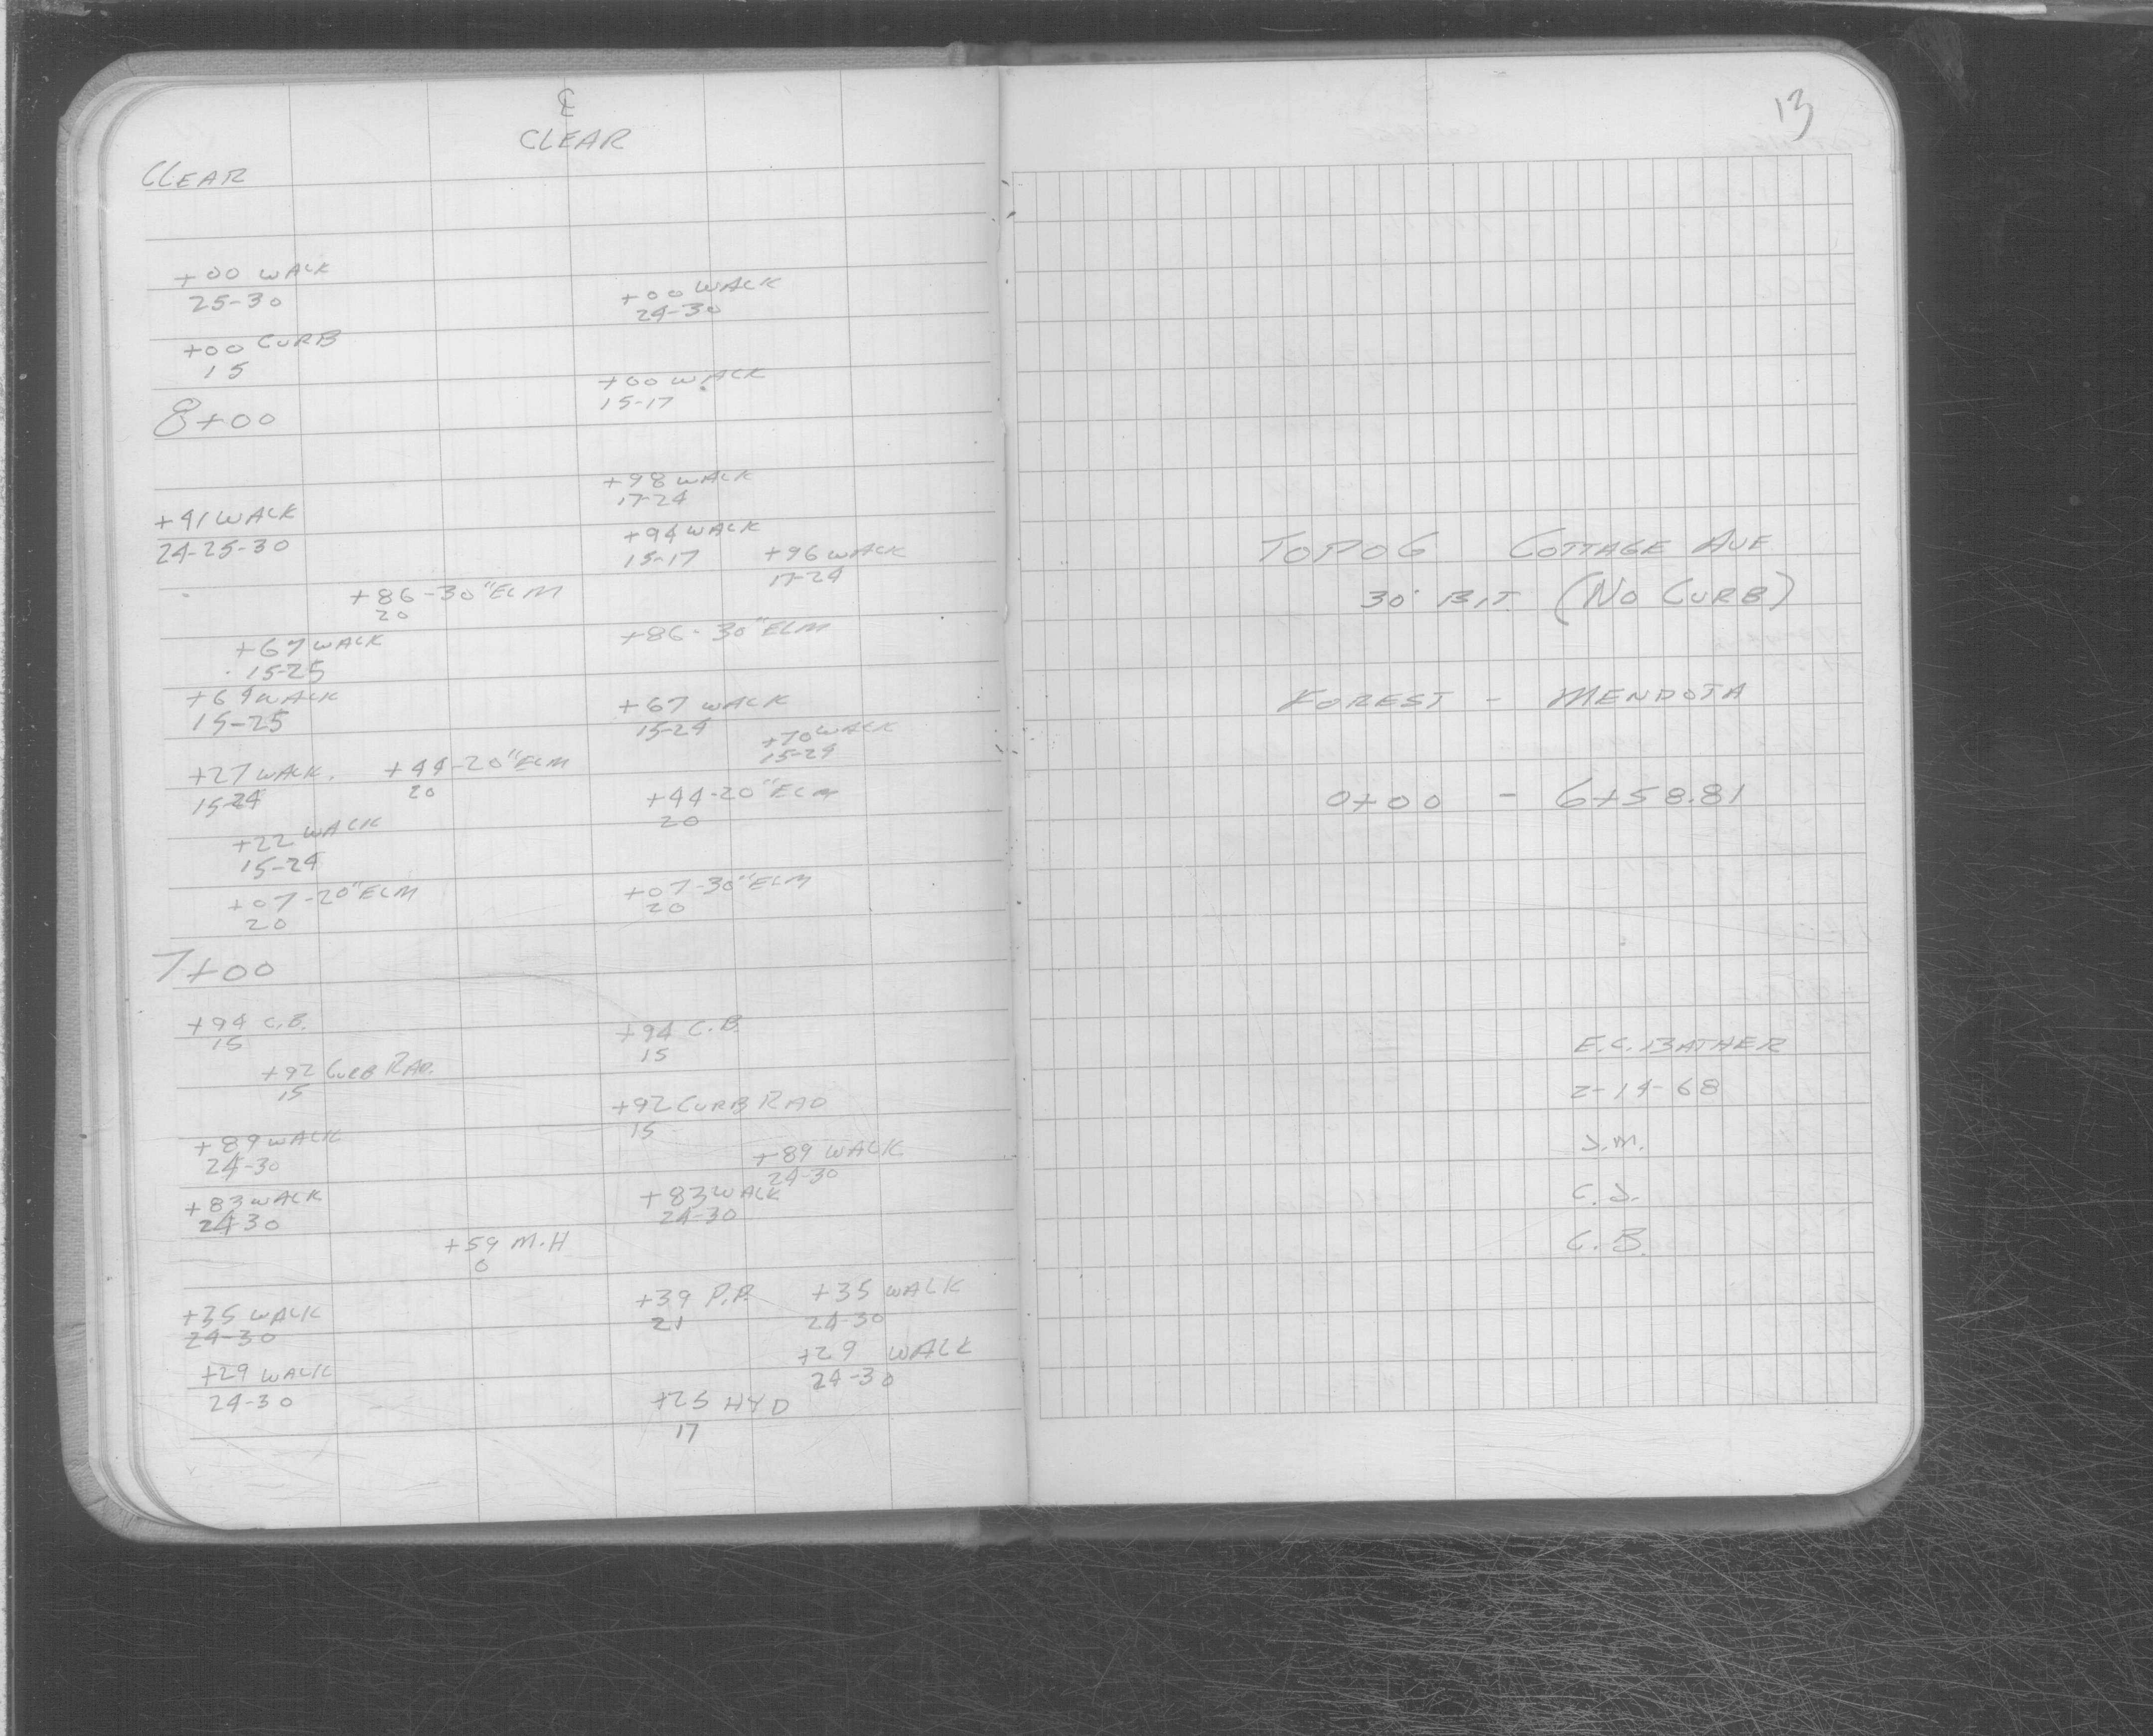 ℄
CLEAR
CLEAR
+00 WALK
25-30
+00 WALK
24-30
+00 CURB
15
+00 WALK
15-17
8+00
+98 WALK
17-24
+91 WALK
24-25-30
+94 WALK
15-17
+96 WALK
17-24
+86-30" ELM
20
+86-30" ELM
+67 WALK
15-25
+64 WALK
15-25
+67 WALK
15-24
+70 WALK
15-24
+27 WALK
15-24
+44-20" ELM
20
+44-20" ELM
20
+22 WALK
15-24
+07-20" ELM
20
+07-30" ELM
20
7+00
+94 C.B.
15
+94 C.B.
15
+92 CURB RAD.
15
+92 CURB RAD
15
+89 WALK
24-30
+89 WALK
24-30
+83 WALK
24-30
+83 WALK
24-30
+59 M.H
0
+35 WALK
24-30
+39 P.P.
21
+35 WALK
24-30
+29 WALK
24-30
+29 WALK
24-30
+25 HYD
17
13
TOPOG COTTAGE AVE
30' BIT. (NO CURB)
FOREST - MENDOTA
0+00 - 6+58.81
E.C. BATHER
2-14-68
J.M.
C.J.
C.B.